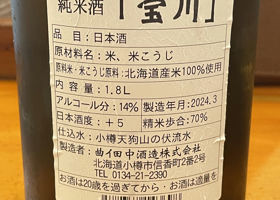 純米酒「宝川」
品目：日本酒
原材料名：米、米こうじ
原料米・米こうじ原料：北海道産米100％使用
内容量：1.8L
アルコール分：14％ 製造年月：2024.3
日本酒度：＋5 精米歩合：70％
仕込水：小樽天狗山の伏流水
製造者：田中酒造株式会社
北海道小樽市信香町2番2号
TEL 0134-21-2390
お酒は20歳を過ぎてから・お酒は適量を